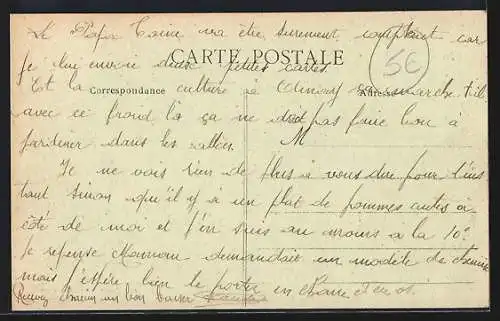 Le Papa va être surement content car
CARTE POSTALE
5€
je lui envoie deux petites cartes.
Correspondance
Et la culture à ça marche t-il
avec ce froid là ça ne doit pas faire bon à
M
jardiner dans les allées.
Je ne vois rien de plus à vous dire pour l'ins
tant sinon qu'il y a un plat de pommes cuites à
côté de moi et j'en suis au moins à la 10e
Je repense Maman demandait un modèle de chemise
mais j'espère bien le porter en chair et en os.
Recevez chacun un bon baiser